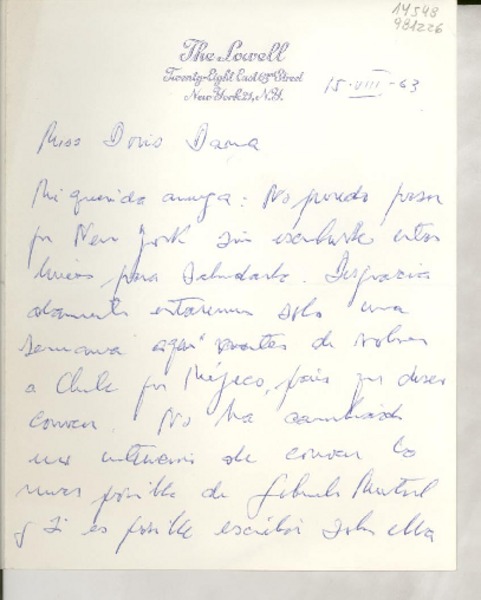 14548
981226
The Lowell
Twenty-Eight East 63rd Street
New York 21, N.Y.
15-VIII-63
Miss Doris Dana
Mi querida amiga: No puedo pasar
por New York sin escribirte estas
líneas para saludarla. Desgracia
damente estaremos solo una
semana aquí antes de volver
a Chile por Méjico, país que deseo
conocer. No ha cambiado
mi intención de conocer lo
mas posible de Gabriela Mistral
y si es posible escribir sobre ella